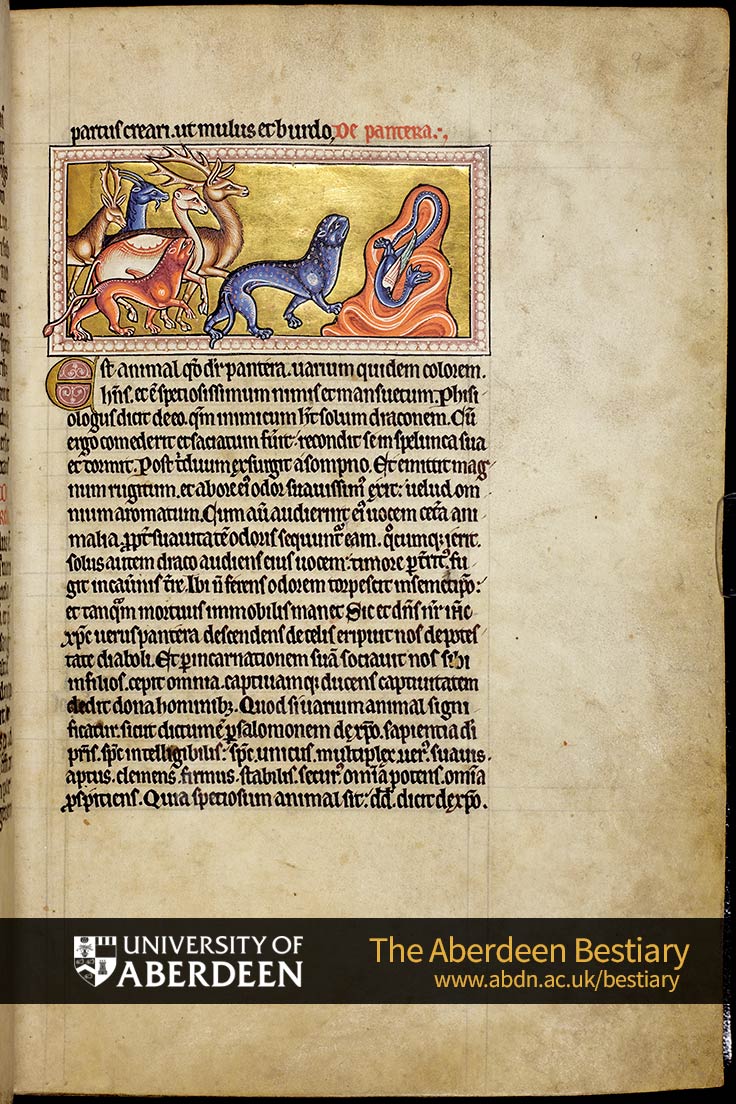 partus creari. ut mulus et burdo. De pantera.
Est animal qd dr pantera. uarium quidem colorem.
hns. et e speciosissimum nimis et mansuetum. Phisi
ologus dicit de eo. qm inimicum ht solum draconem. Cu
ergo comederit et saciatum fuit recondit se in spelunca sua
et dormit. Post tduum exsurgit a sompno. Et emittit mag
num rugitum. et ab ore ei odor suauissim exit: uelud om
nium aromatum. Cum au audierint ei uocem cetera ani
malia. ppt suauitate odoris sequunt eam. qcumq; ierit.
solus autem draco audiens eius uocem: timore ptrit fu
git in cauernis tre. Ibi n ferens odorem torpescit in semetipo:
et tanqm mortuus immobilis manet. Sic et dns nr ihc
xpc uerus pantera descendens de celis eripuit nos de potes
tate diaboli. Et p incarnationem sua sociauit nos sibi
in filios. cepit omnia. captiuamq; ducens captiuitatem
dedit dona hominib;. Quod si uarium animal signi
ficatur. sicut dictum e p salomonem de xpo. sapientia di
pris. spc intelligibilis. spc. unicus. multiplex. uer. suauis.
aptus. clemens. firmus. stabilis. secur. omia potens. omia
pspiciens. Quia speciosum animal sit: dd. dicit de xpo.
UNIVERSITY OF
ABERDEEN
The Aberdeen Bestiary
www.abdn.ac.uk/bestiary